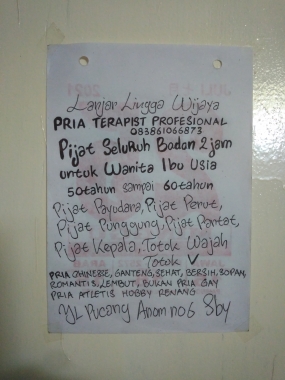 Lanjar Lingga Wijaya
PRIA TERAPIST PROFESIONAL
083861066873
Pijat Seluruh Badan 2 jam
untuk Wanita Ibu Usia
50 tahun sampai 60 tahun
Pijat Payudara, Pijat Perut,
Pijat Punggung, Pijat Pantat,
Pijat Kepala, Totok Wajah
Totok V
PRIA CHINESSE, GANTENG, SEHAT, BERSIH, SOPAN,
ROMANTIS, LEMBUT, BUKAN PRIA GAY
PRIA ATLETIS HOBBY RENANG
JL Pucang Anom no 6 Sby